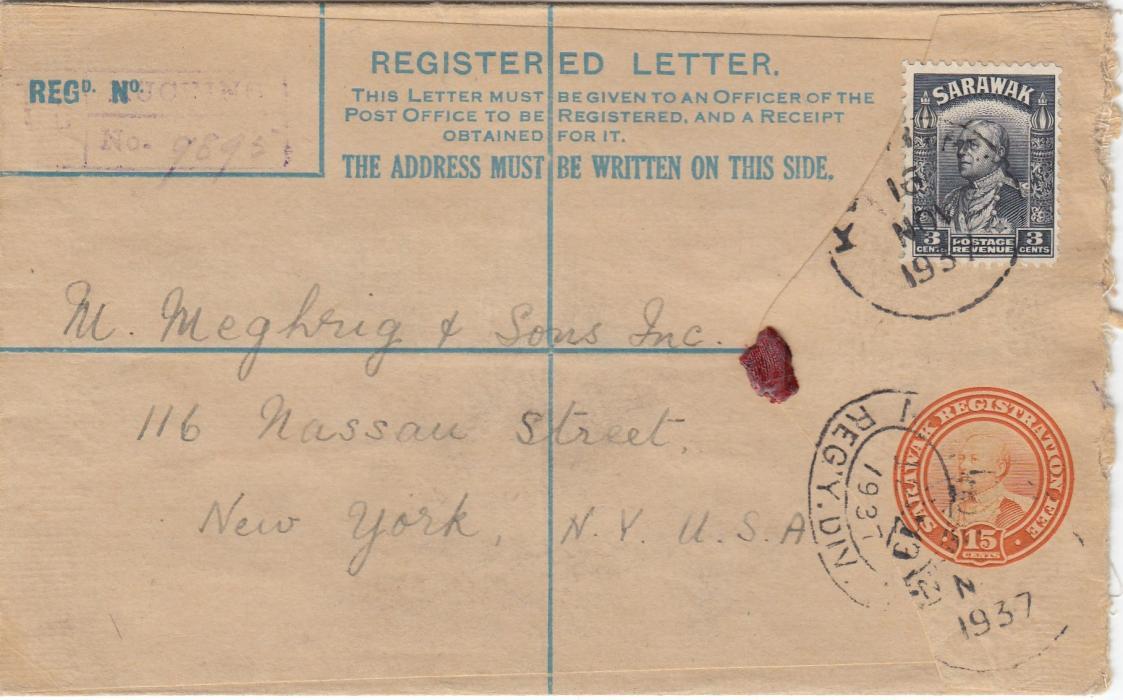 REGISTERED LETTER.
REGD. No.
THIS LETTER MUST BE GIVEN TO AN OFFICER OF THE
POST OFFICE TO BE REGISTERED, AND A RECEIPT
OBTAINED FOR IT.
THE ADDRESS MUST BE WRITTEN ON THIS SIDE.
KUCHING
No. 9895
SARAWAK
3 CENTS POSTAGE REVENUE 3 CENTS
NOV
1937
M. Meghrig & Sons Inc.
116 Nassau Street,
New York, N.Y. U.S.A
SARAWAK REGISTRATION FEE
15
CENTS
REG'Y. DIV.
1937
1937